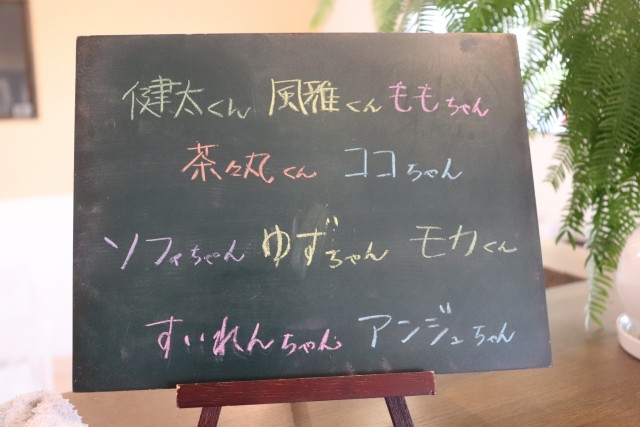 健太くん 風雅くん ももちゃん
茶々丸くん ココちゃん
ソフィちゃん ゆずちゃん モカくん
すいれんちゃん アンジュちゃん